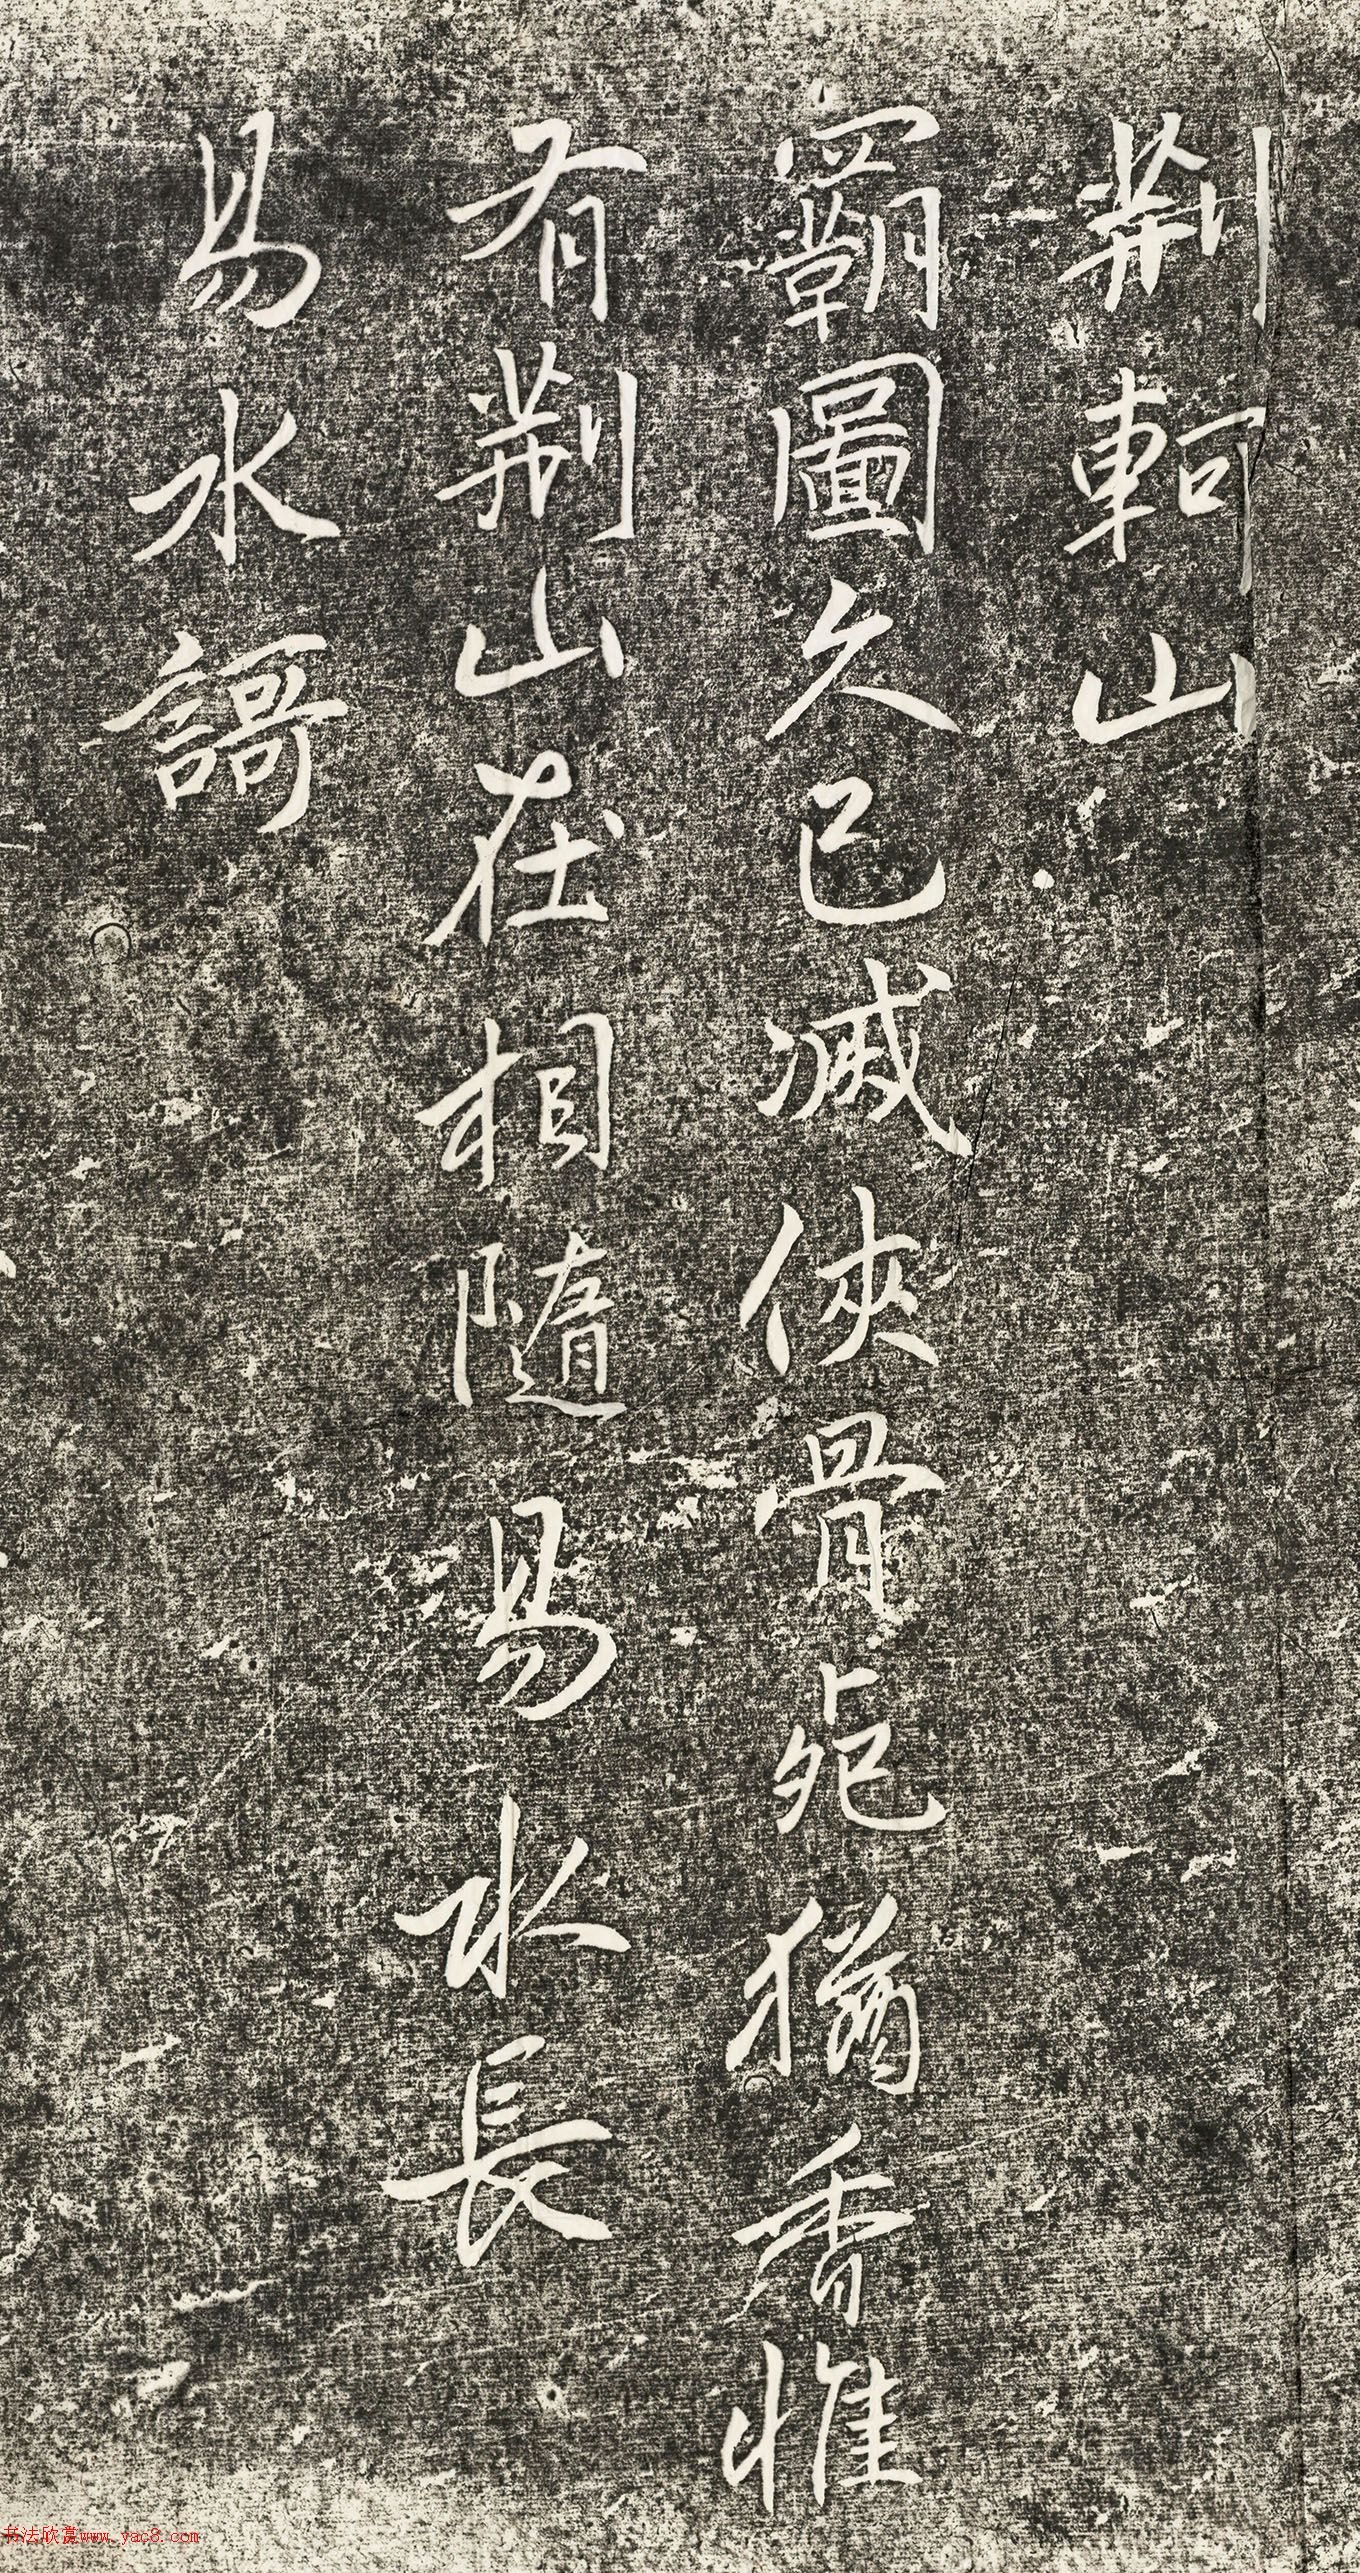 荆軻山
霸圖久已滅俠骨死猶香惟
有荆山在相隨易水長
易水謌
书法欣赏www.yac8.com